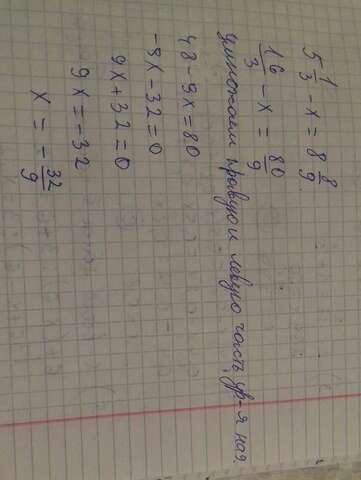 5 1/3 - x = 8 8/9
16/3 - x = 80/9
умножаем правую и левую часть ур-я на 9
48 - 9x = 80
-9x - 32 = 0
9x + 32 = 0
9x = -32
x = - 32/9